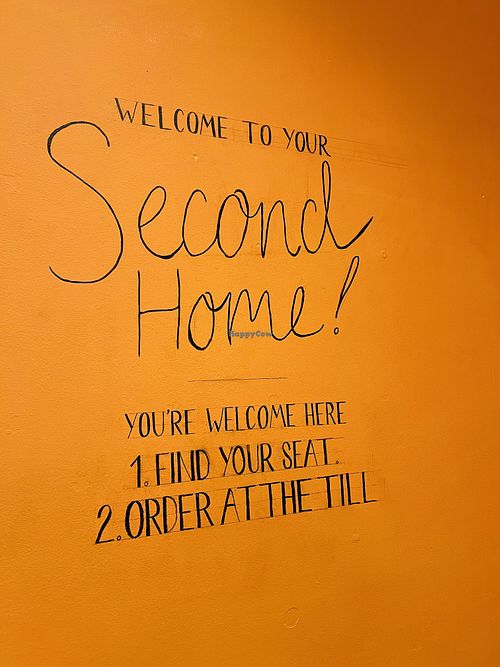 WELCOME TO YOUR
Second
Home!
HappyCow
YOU'RE WELCOME HERE
1. FIND YOUR SEAT.
2. ORDER AT THE TILL